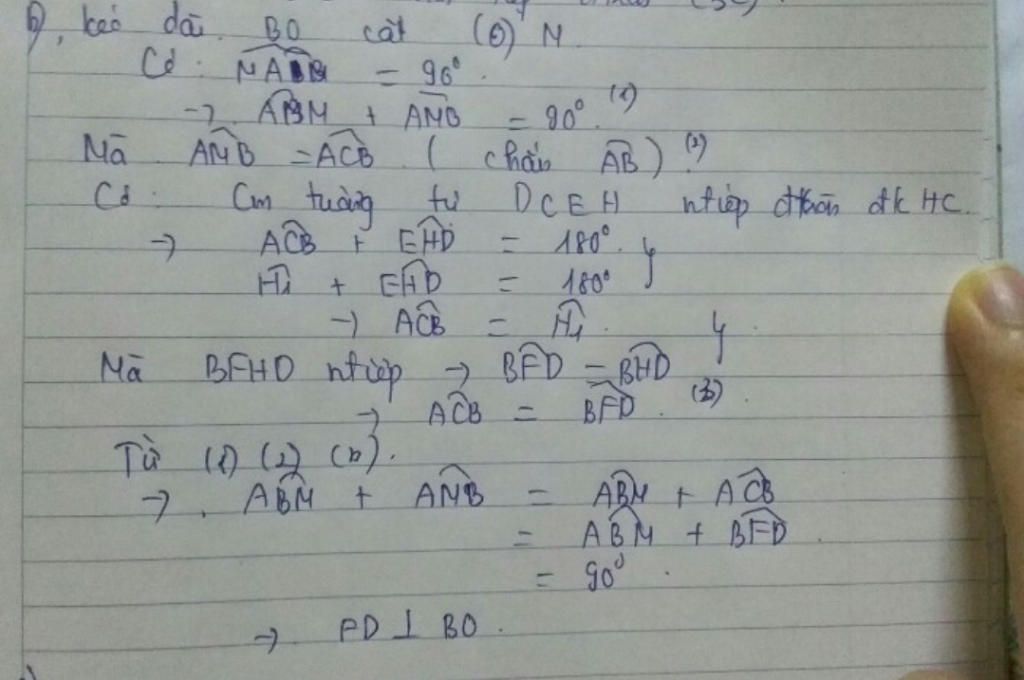 b, kéo dài BO cắt (O) M.
Có: MAB = 90°.
→ ABM + AMB = 90°. (1)
Mà AMB = ACB ( chắn AB ) (2)
Có: Cm tương tự DCEH ntiếp đtròn đk HC.
→ ACB + EHD = 180°. }
H₁ + EHD = 180°
→ ACB = H₁. }
Mà BFHD ntiếp → BFD = BHD
→ ACB = BFD. (3)
Từ (1) (2) (3).
→ . ABM + AMB = ABM + ACB
= ABM + BFD.
= 90°.
→ FD ⊥ BO.